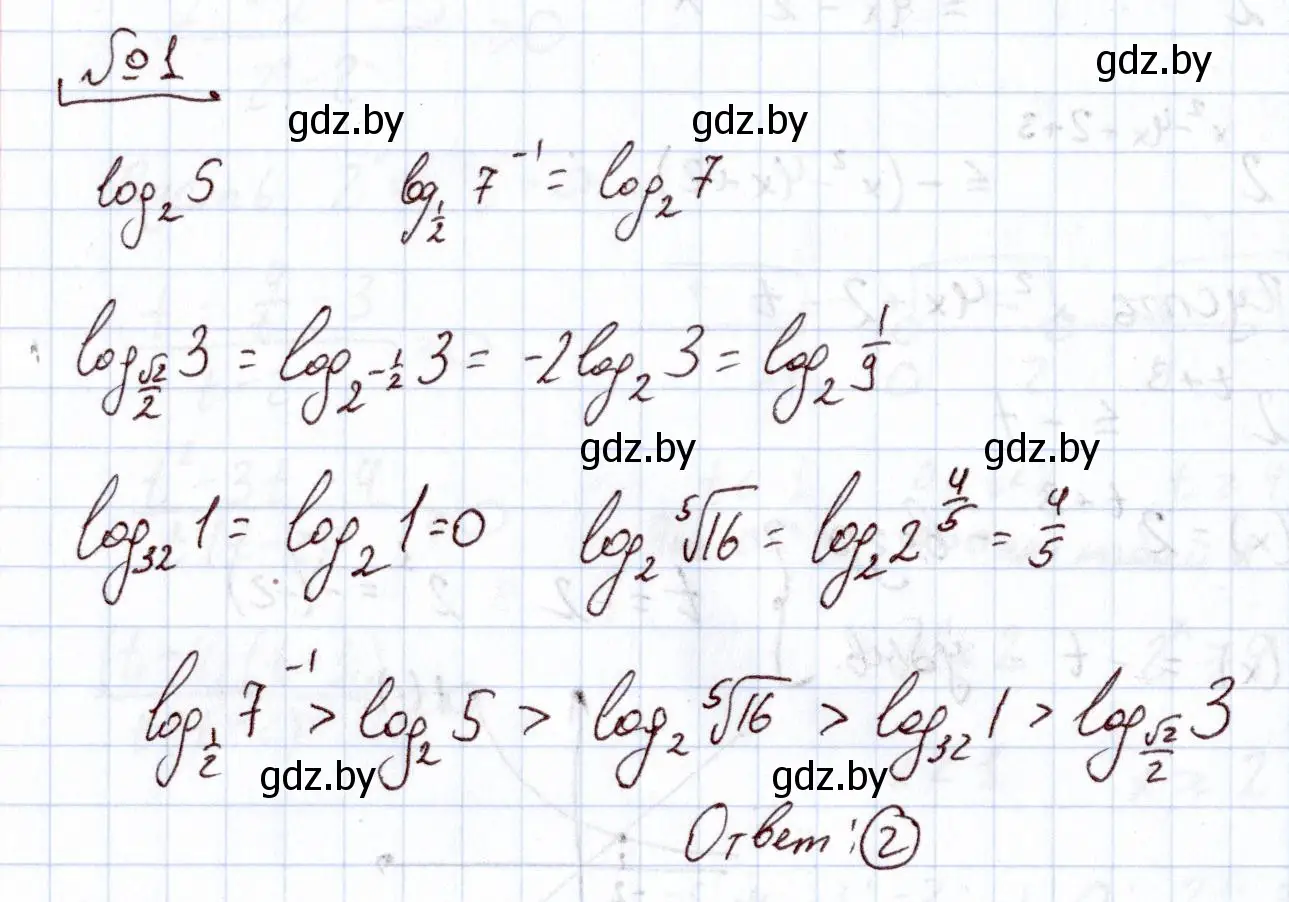 №1
gdz.by
gdz.by gdz.by
log₂ 5 log_{1/2} 7⁻¹ = log₂ 7
log_{√2/2} 3 = log_{2^{-1/2}} 3 = -2 log₂ 3 = log₂ 1/9
gdz.by gdz.by
log₃₂ 1 = log₂ 1 = 0 log₂ ⁵√16 = log₂ 2^{4/5} = 4/5
log_{1/2} 7⁻¹ > log₂ 5 > log₂ ⁵√16 > log₃₂ 1 > log_{√2/2} 3
gdz.by gdz.by
Ответ: 2